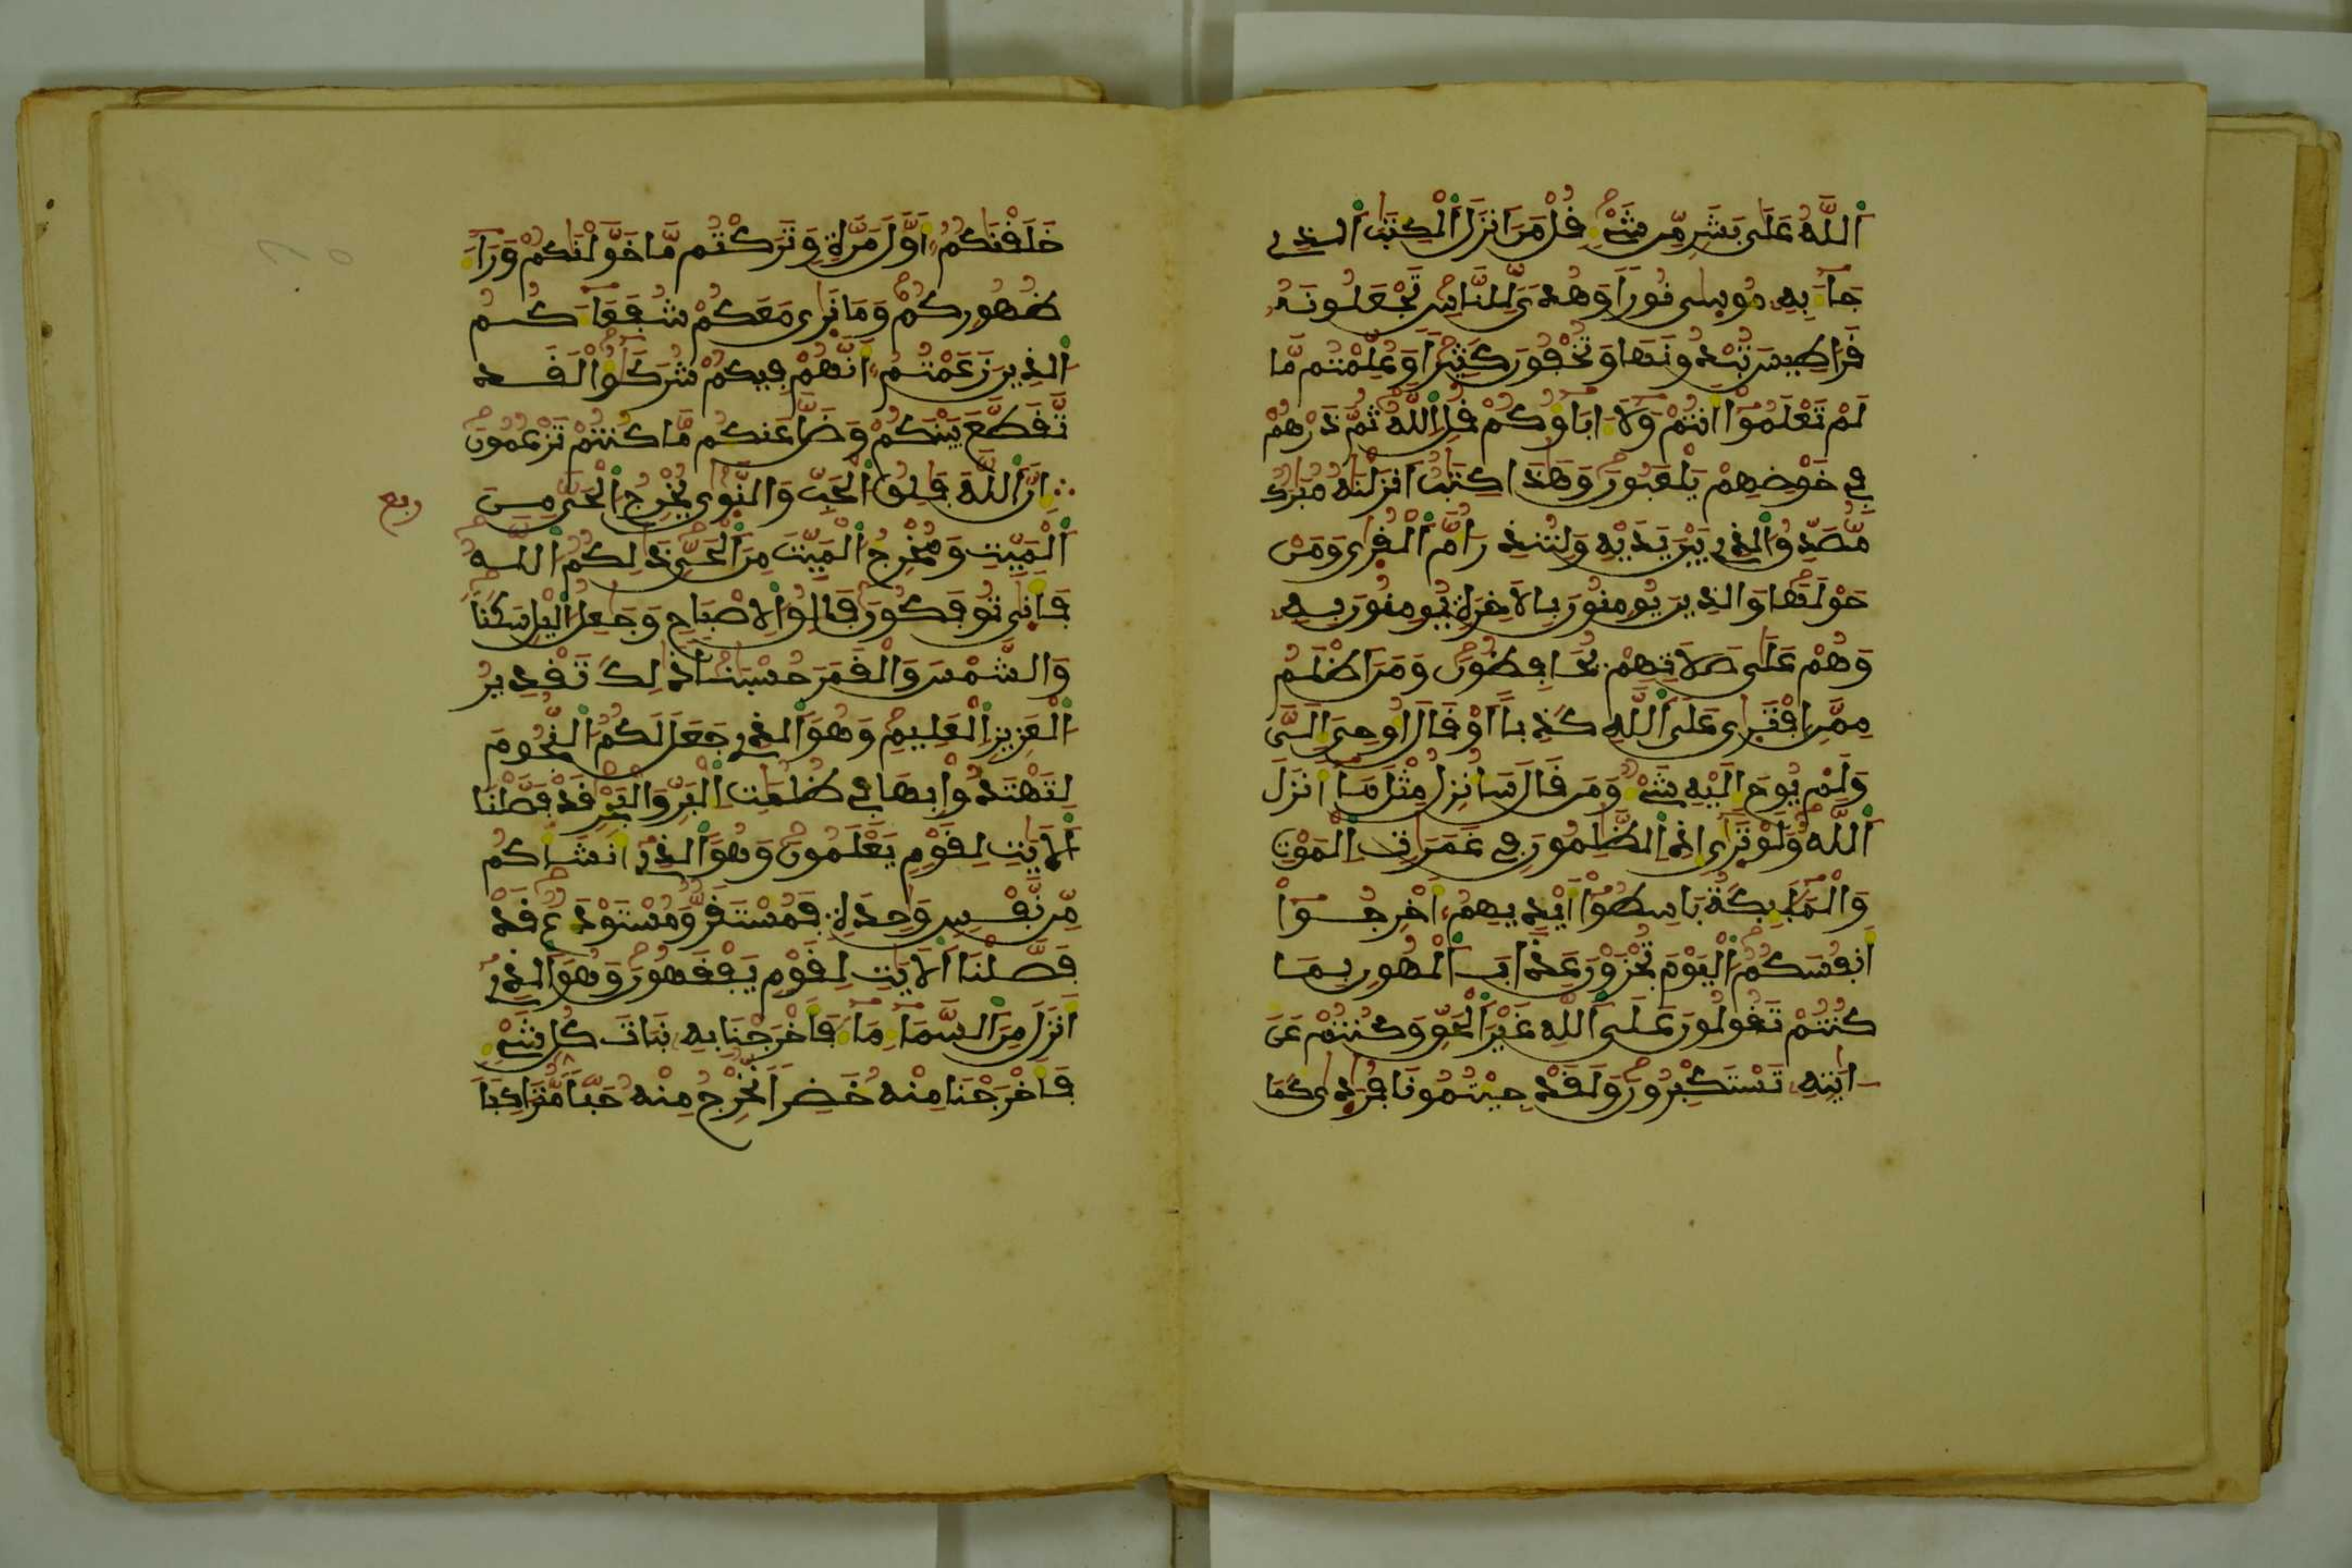 اَ۬للَّهُ عَلَىٰ بَشَرٍ مِّن شَےْءٍ قُلْ مَنَ اَنزَلَ اَ۬لْكِتَٰبَ اَ۬لذِے
جَآءَ بِهِۦ مُوس۪ىٰ نُوراٗ وَهُدىٗ لِّلنَّاسِ تَجْعَلُونَهُۥ
قَرَاطِيسَ تُبْدُونَهَا وَتُخْفُونَ كَثِيراٗ وَعُلِّمْتُم مَّا
لَمْ تَعْلَمُوٓاْ أَنتُمْ وَلَآ ءَابَآؤُكُمْ قُلِ اِ۬للَّهُ ثُمَّ ذَرْهُمْ
فِے خَوْضِهِمْ يَلْعَبُونَ وَهَٰذَا كِتَٰبٌ اَنزَلْنَٰهُ مُبَٰرَكٌ
مُّصَدِّقُ اُ۬لذِے بَيْنَ يَدَيْهِ وَلِتُنذِرَ أُمَّ اَ۬لْقُر۪ىٰ وَمَنْ
حَوْلَهَا وَالذِينَ يُومِنُونَ بِالَاخِرَةِ يُومِنُونَ بِهِۦ
وَهُمْ عَلَىٰ صَلَاتِهِمْ يُحَافِظُونَ وَمَنَ اَظْلَمُ
مِمَّنِ اِ۪فْتَر۪ىٰ عَلَى اَ۬للَّهِ كَذِباً اَوْ قَالَ أُوحِيَ إِلَيَّ
وَلَمْ يُوحَ إِلَيْهِ شَےْءٌ وَمَن قَالَ سَأُنزِلُ مِثْلَ مَآ أَنزَلَ
اَ۬للَّهُ وَلَوْ تَر۪ىٰٓ إِذِ اِ۬لظَّٰلِمُونَ فِے غَمَرَٰتِ اِ۬لْمَوْتِ
وَالْمَلَٰٓئِكَةُ بَاسِطُوٓاْ أَيْدِيهِمُۥٓ أَخْرِجُوٓاْ
أَنفُسَكُمُ اُ۬لْيَوْمَ تُجْزَوْنَ عَذَابَ اَ۬لْهُونِ بِمَا
كُنتُمْ تَقُولُونَ عَلَى اَ۬للَّهِ غَيْرَ اَ۬لْحَقِّ وَكُنتُمْ عَنَ
ايَٰتِهِۦ تَسْتَكْبِرُونَ وَلَقَدْ جِئْتُمُونَا فُرَٰد۪ىٰ كَمَا
خَلَقْنَٰكُمُۥٓ أَوَّلَ مَرَّةٖ وَتَرَكْتُم مَّا خَوَّلْنَٰكُمْ وَرَآءَ
ظُهُورِكُمْ وَمَا نَر۪ىٰ مَعَكُمْ شُفَعَآءَكُمُ
اُ۬لذِينَ زَعَمْتُمُۥٓ أَنَّهُمْ فِيكُمْ شُرَكَٰٓؤُاْ لَقَد
تَّقَطَّعَ بَيْنَكُمْ وَضَلَّ عَنكُم مَّا كُنتُمْ تَزْعُمُونَ
إِنَّ اَ۬للَّهَ فَٰلِقُ اُ۬لْحَبِّ وَالنَّو۪ىٰ يُخْرِجُ اُ۬لْحَيَّ مِنَ
ربع
اَ۬لْمَيِّتِ وَمُخْرِجُ اُ۬لْمَيِّتِ مِنَ اَ۬لْحَيِّ ذَٰلِكُمُ اُ۬للَّهُ
فَأَنّ۪ىٰ تُوفَكُونَ فَالِقُ اُ۬لِاصْبَاحِ وَجَٰعِلُ اُ۬ليْلِ سَكَناٗ
وَالشَّمْسَ وَالْقَمَرَ حُسْبَٰناٗ ذَٰلِكَ تَقْدِيرُ
اُ۬لْعَزِيزِ اِ۬لْعَلِيمِ وَهُوَ اَ۬لذِے جَعَلَ لَكُمُ اُ۬لنُّجُومَ
لِتَهْتَدُواْ بِهَا فِے ظُلُمَٰتِ اِ۬لْبَرِّ وَالْبَحْرِ قَدْ فَصَّلْنَا
اَ۬لَايَٰتِ لِقَوْمٖ يَعْلَمُونَ وَهُوَ اَ۬لذِےٓ أَنشَأَكُم
مِّن نَّفْسٖ وَٰحِدَةٖ فَمُسْتَقَرّٞ وَمُسْتَوْدَعٞ قَدْ
فَصَّلْنَا اَ۬لَايَٰتِ لِقَوْمٖ يَفْقَهُونَ وَهُوَ اَ۬لذِےٓ
أَنزَلَ مِنَ اَ۬لسَّمَآءِ مَآءٗ فَأَخْرَجْنَا بِهِۦ نَبَاتَ كُلِّ شَےْءٖ
فَأَخْرَجْنَا مِنْهُ خَضِراٗ نُّخْرِجُ مِنْهُ حَبّاٗ مُّتَرَاكِباٗ